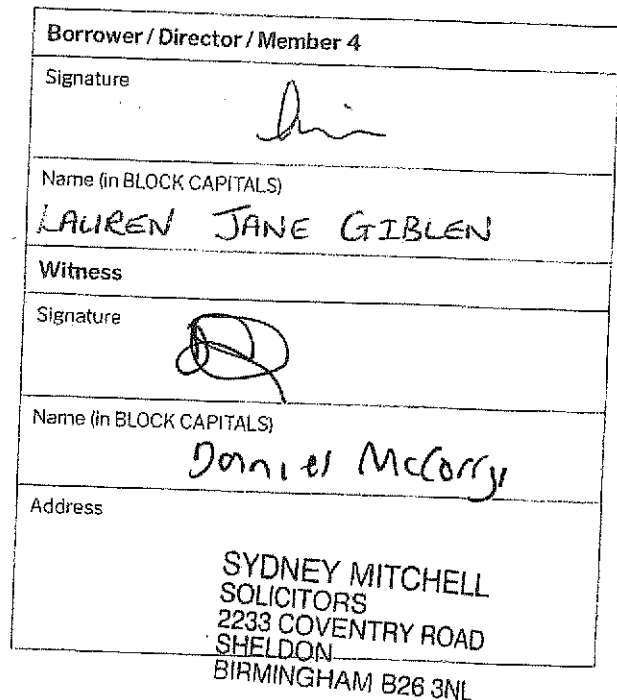 Borrower / Director / Member 4
Signature
Name (in BLOCK CAPITALS)
LAUREN JANE GIBLEN
Witness
Signature
Name (in BLOCK CAPITALS)
Daniel McCorry
Address
SYDNEY MITCHELL
SOLICITORS
2233 COVENTRY ROAD
SHELDON
BIRMINGHAM B26 3NL